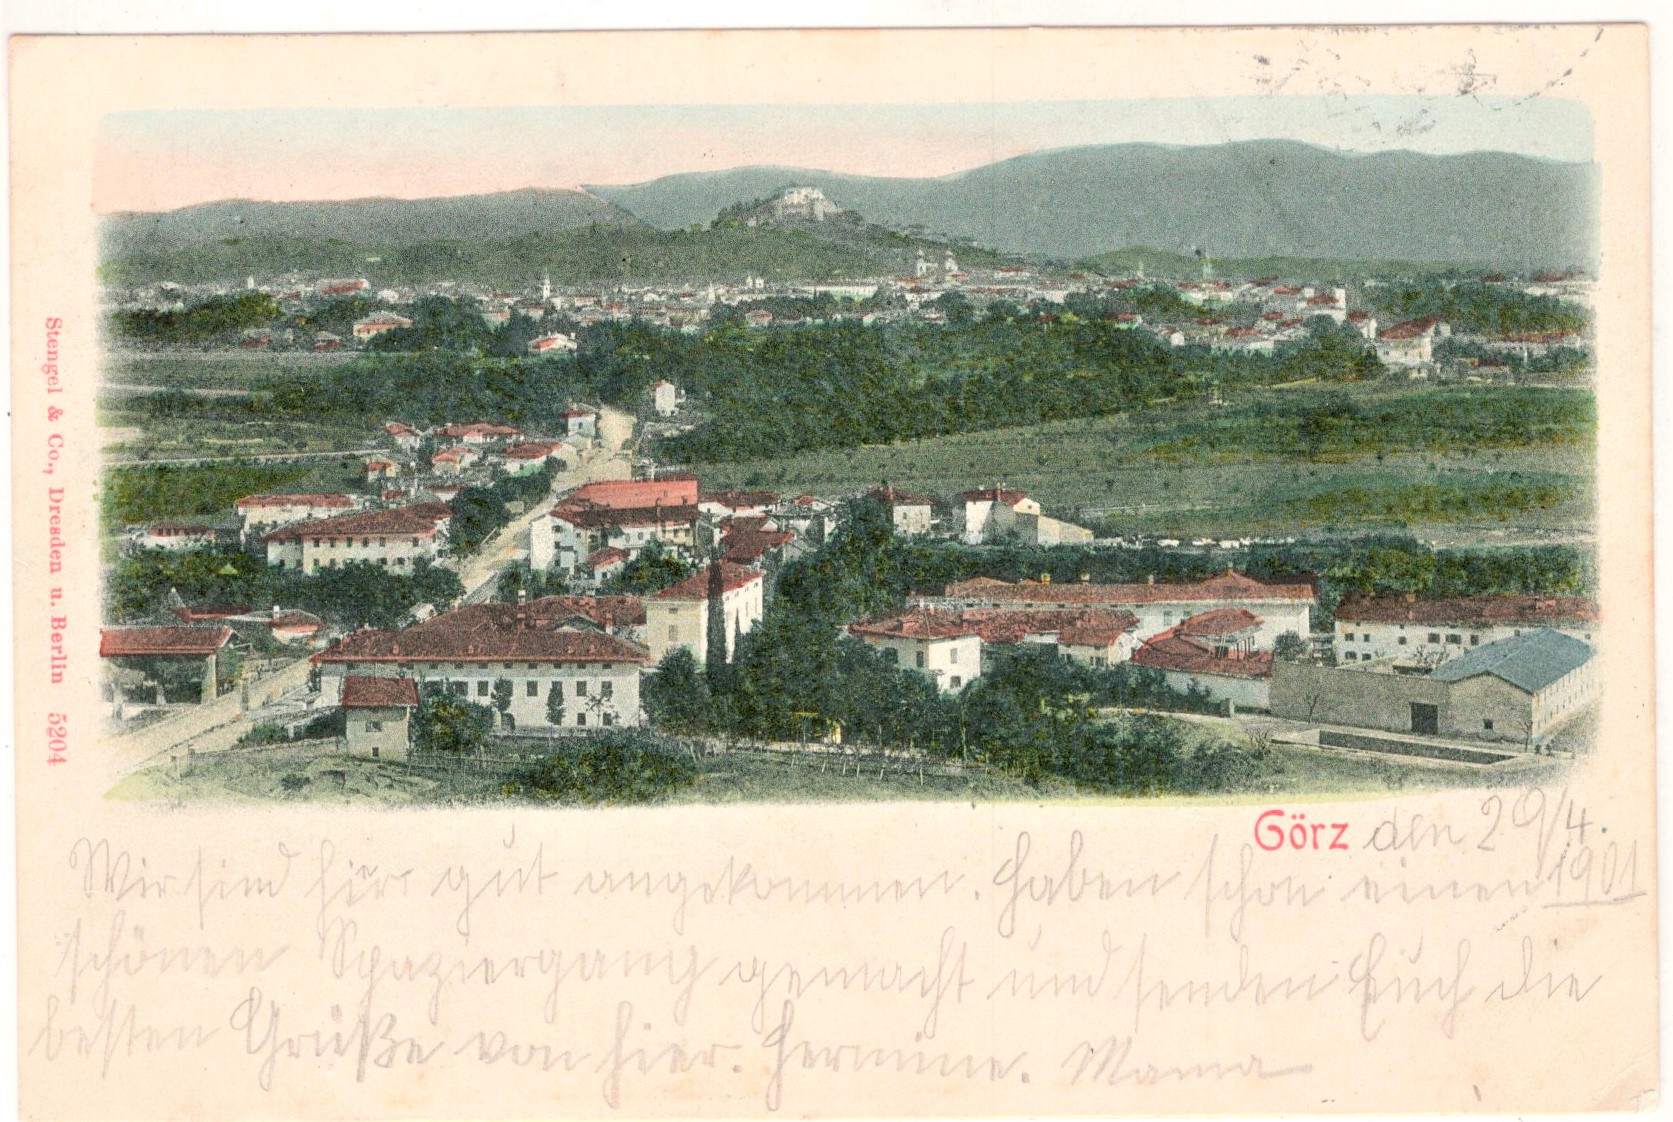 Stengel & Co., Dresden u. Berlin 5204
Görz den 29/4.
1901
Wir sind hier gut angekommen. Haben schon einen
schönen Spaziergang gemacht und senden Euch die
besten Grüße von hier. Hermine. Mama